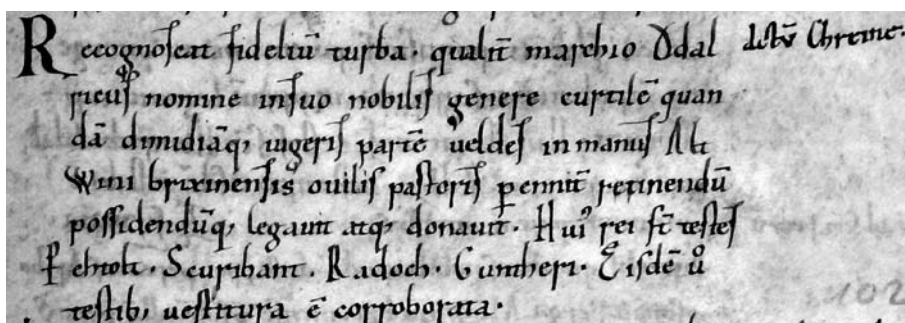 Recognoscat fideliū turba· qualit̄ marchio Ŏdal
ricus nomine insuo nobilis genere curtilē quan
dā dimidiāq; iugeris partē ueldes inmanus Alt
Wini brixinensis ouilis pastoris ꝑennit̄ retinendū
possidendūq; legauit atq; donauit· Hui᾽ rei st̄ testes
Perhtolt· Scuribant· Radoch· Guntheri· Eisdē ů
testib; uestitura ē corroborata·
102